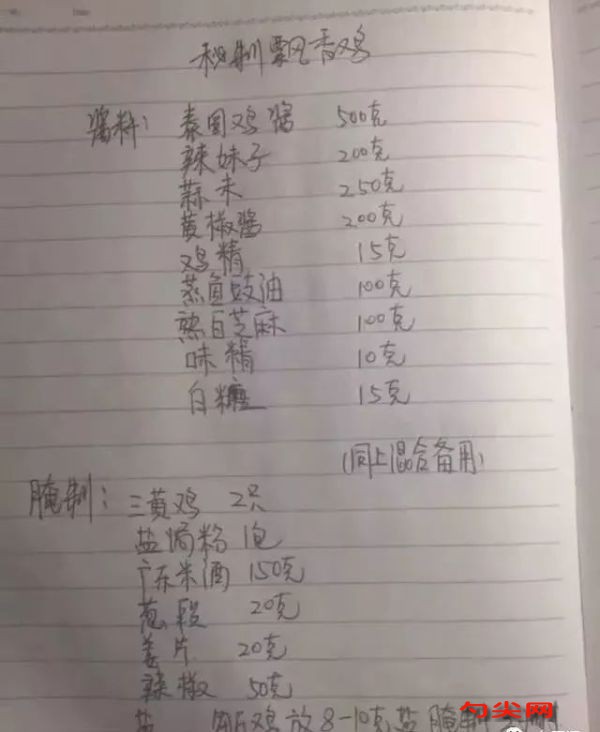 秘制飘香鸡
酱料: 泰国鸡酱 500克
辣妹子 200克
蒜末 250克
黄椒酱 200克
鸡精 15克
蒸鱼豉油 100克
熟白芝麻 100克
味精 10克
白糖 15克
(同上混合备用)
腌制: 三黄鸡 2只
盐焗粉 1包
广东米酒 150克
葱段 20克
姜片 20克
辣椒 50克
盐 每斤鸡放8-10克盐腌制
勺尖网